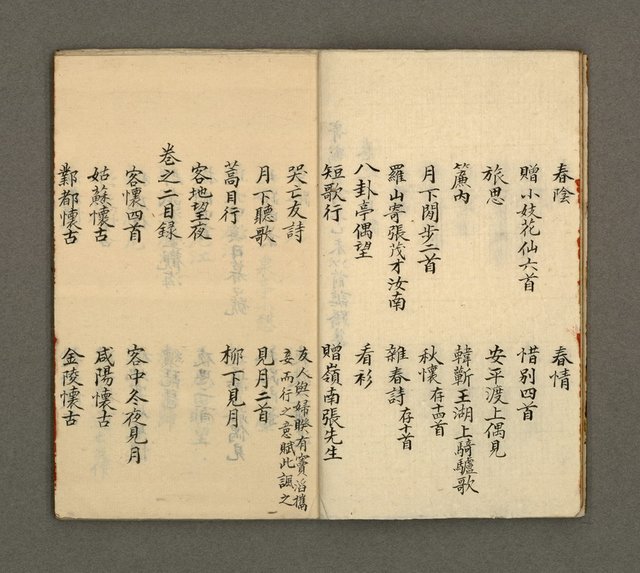 春陰　春情
贈小妓花仙六首　惜别四首
旅思　安平渡上偶見
簾内　韓蘄王湖上騎驢歌
月下閒步二首　秋懷存十四首
羅山寄張茂才汝南　雜春詩存十首
八卦亭偶望　看衫
短歌行　贈嶺南張先生
哭亡友詩　友人與婦賬有竇滔攜妾而行之意賦此諷之
月下聽歌　見月二首
蒿目行　柳下見月
客地望夜
卷之二目録
客懷四首　客中冬夜見月
姑蘇懷古　咸陽懷古
鄴都懷古　金陵懷古